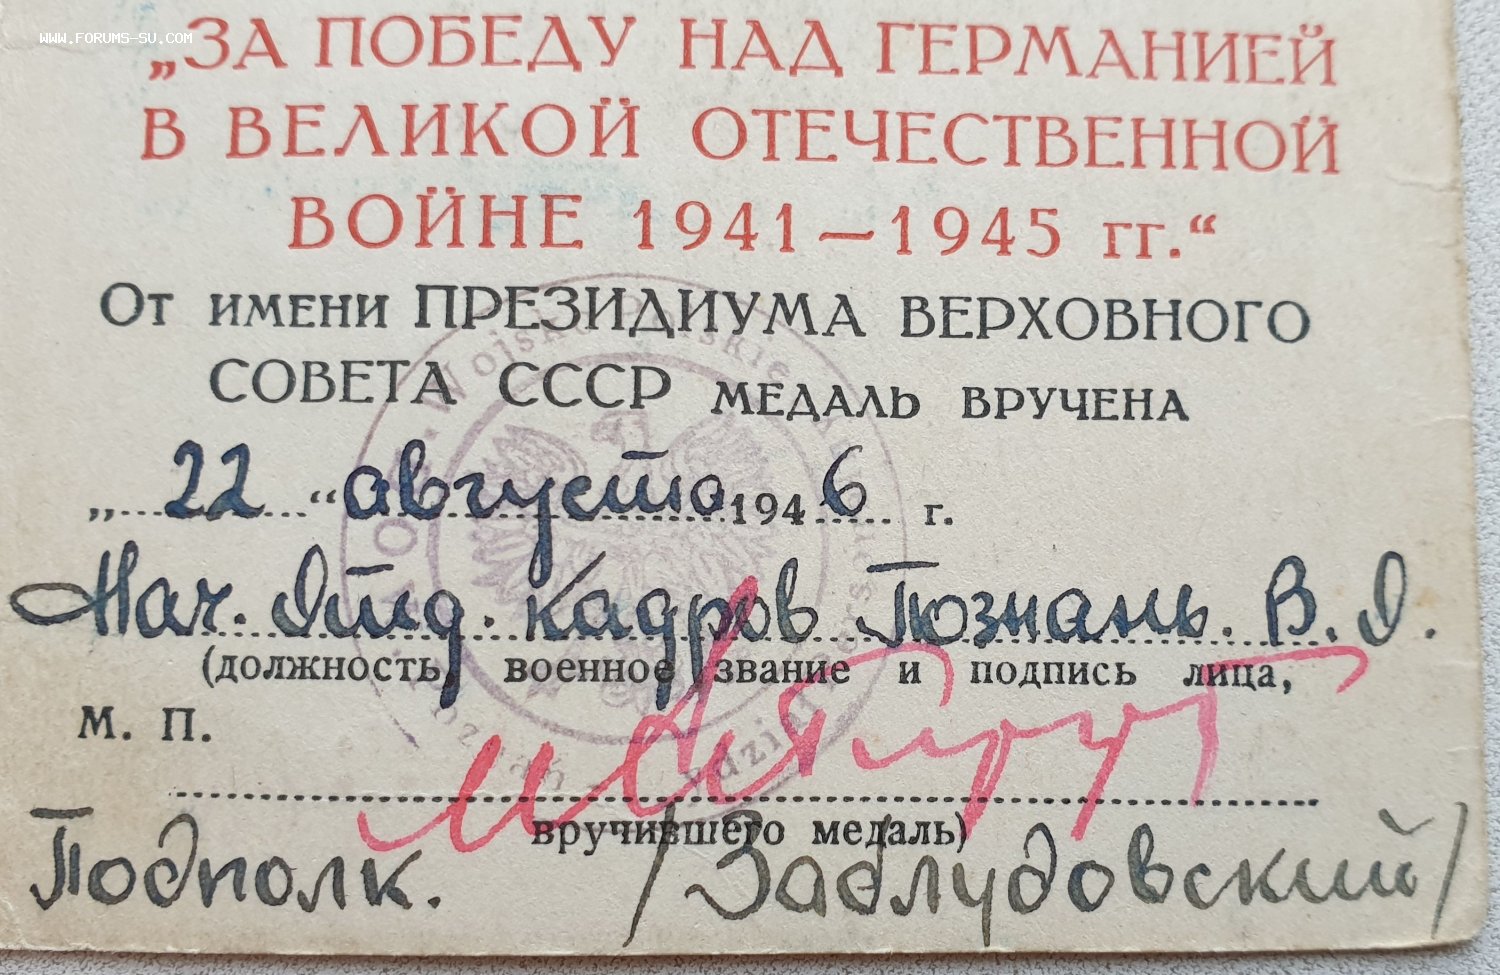 WWW.FORUMS-SU.COM
„ЗА ПОБЕДУ НАД ГЕРМАНИЕЙ
В ВЕЛИКОЙ ОТЕЧЕСТВЕННОЙ
ВОЙНЕ 1941—1945 гг.“
От имени ПРЕЗИДИУМА ВЕРХОВНОГО
СОВЕТА СССР медаль вручена
„22“ августа 1946 г.
Нач. Отд. Кадров Познань. В. О.
(должность, военное звание и подпись лица,
М. П.
вручившего медаль)
Подполк. /Заблудовский/
Wojsko Polskie